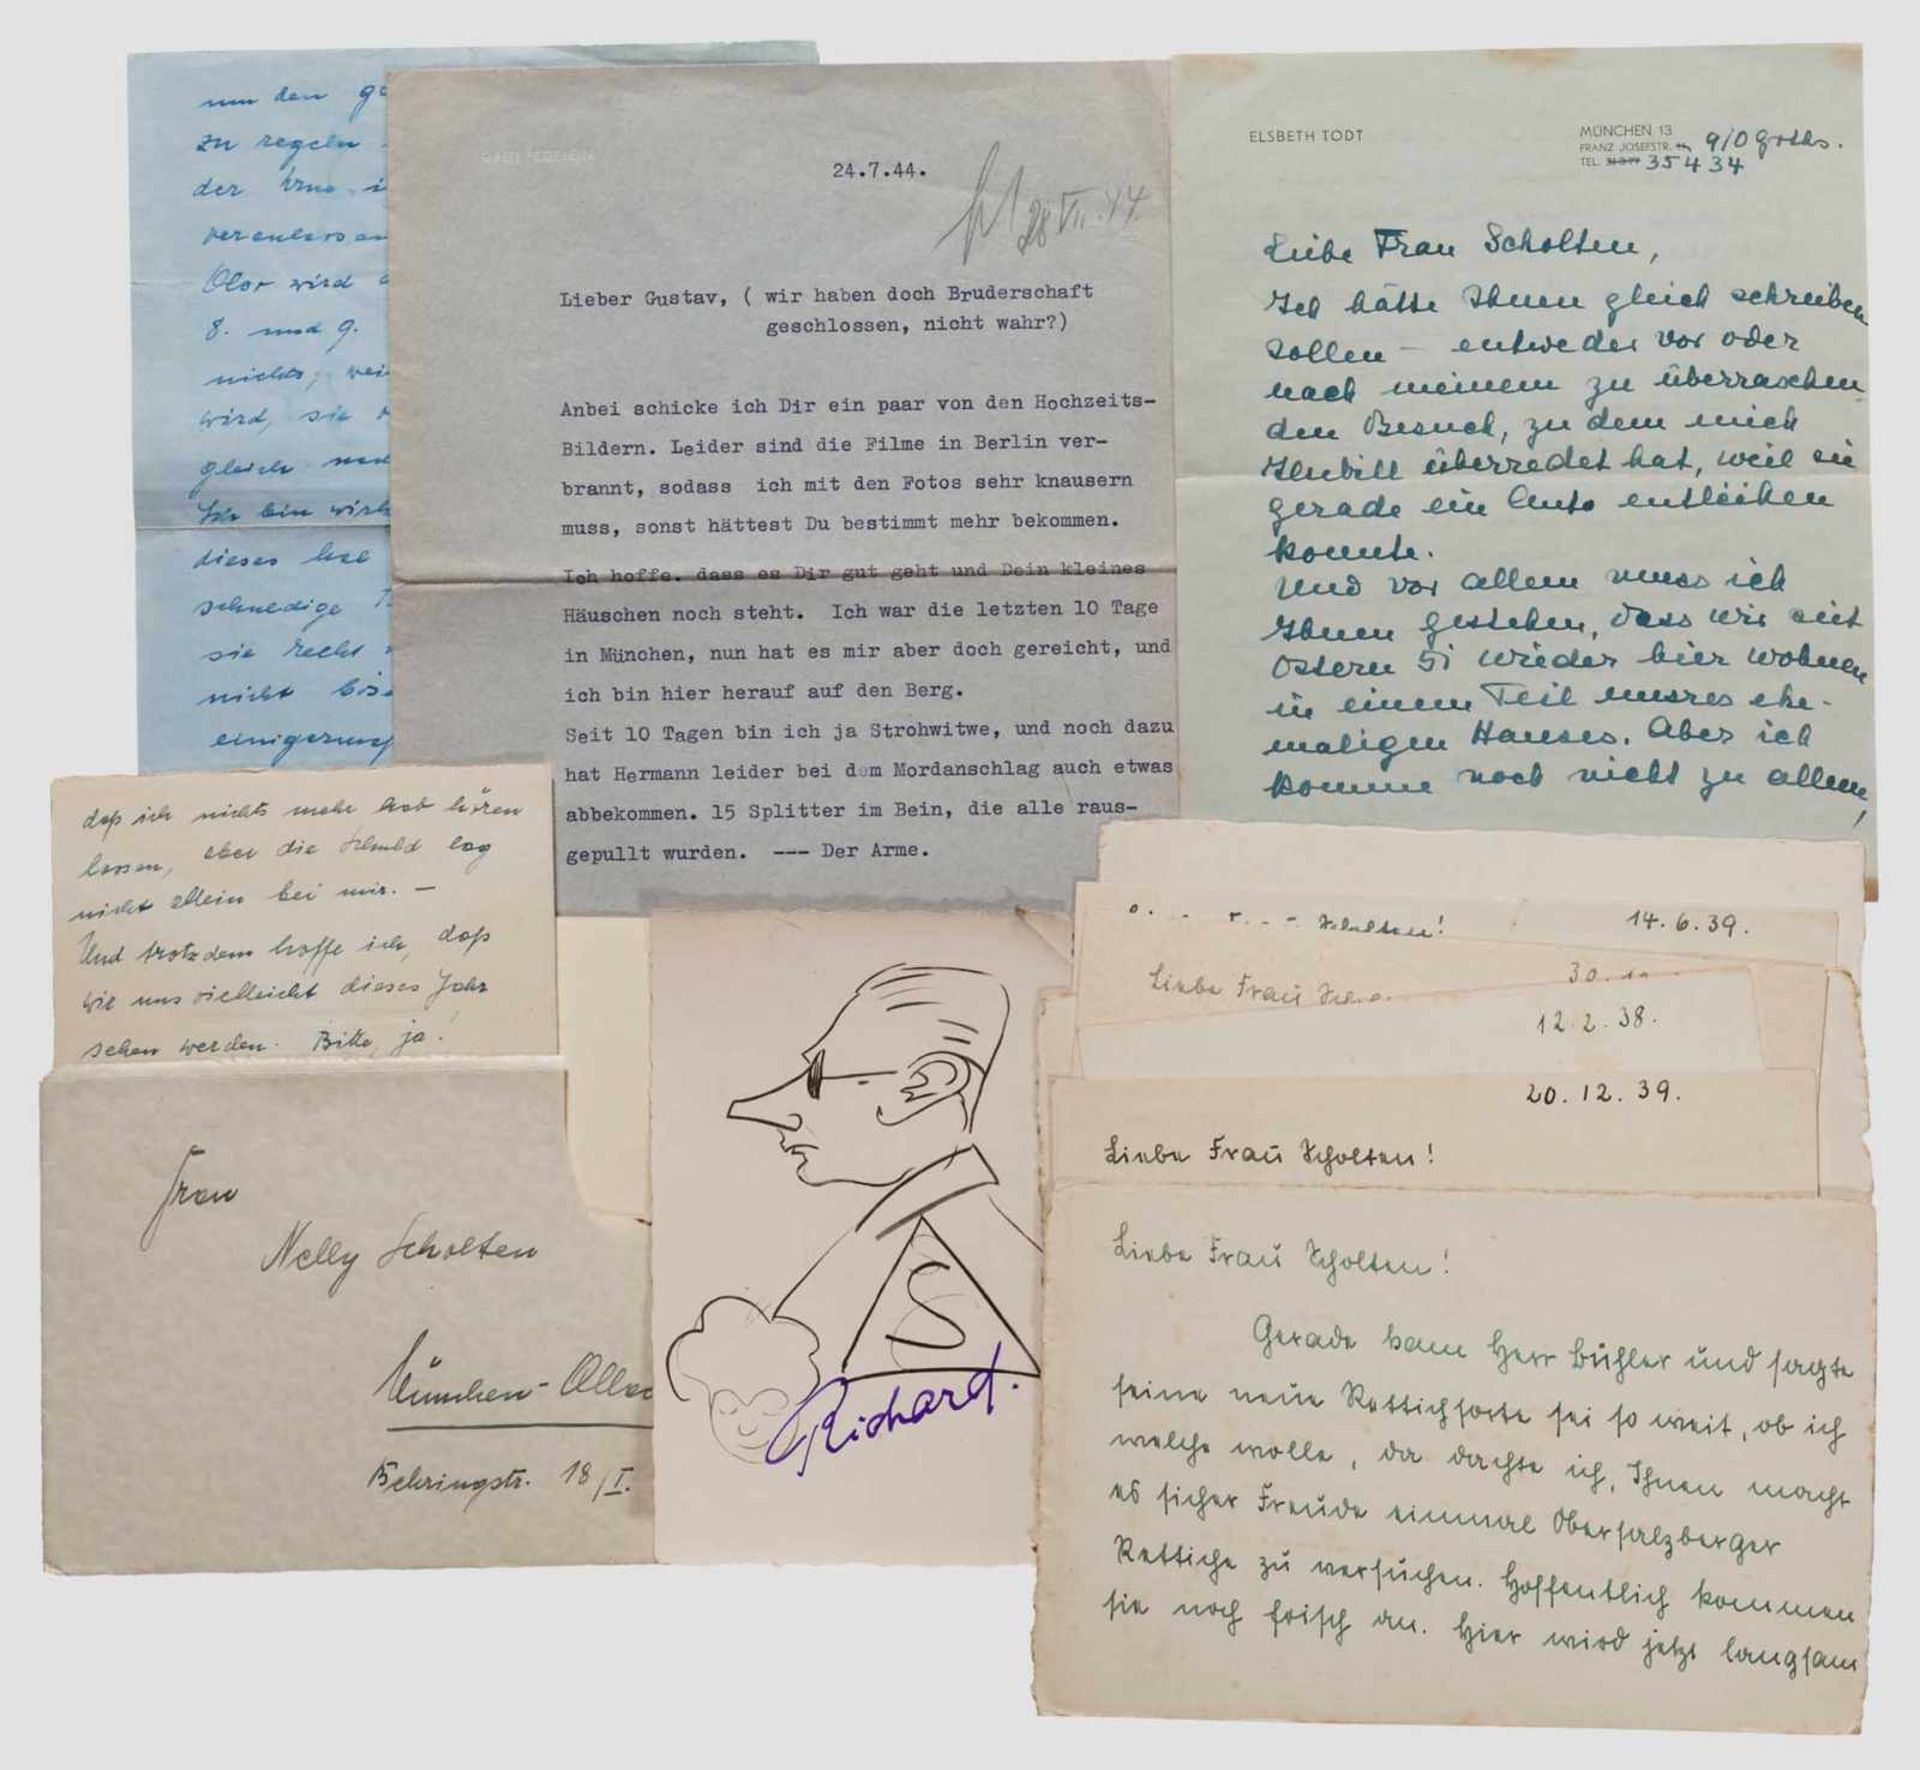 um den
zu regeln
der
veranlassen
Olar wird
8. und 9.
nichts,
wird, sie
gleich
Ich bin
dieses
schneidige
sie recht
nicht
24.7.44.
28 VII. 44.
Lieber Gustav, ( wir haben doch Bruderschaft
geschlossen, nicht wahr?)
Anbei schicke ich Dir ein paar von den Hochzeits-
Bildern. Leider sind die Filme in Berlin ver-
brannt, sodass ich mit den Fotos sehr knausern
muss, sonst hättest Du bestimmt mehr bekommen.
Ich hoffe, dass es Dir gut geht und Dein kleines
Häuschen noch steht. Ich war die letzten 10 Tage
in München, nun hat es mir aber doch gereicht, und
ich bin hier herauf auf den Berg.
Seit 10 Tagen bin ich ja Strohwitwe, und noch dazu
hat Hermann leider bei dem Mordanschlag auch etwas
abbekommen. 15 Splitter im Bein, die alle raus-
gepullt wurden. --- Der Arme.
ELSBETH TODT
MÜNCHEN 13
FRANZ JOSEFSTR. 9/0 Gths.
TEL. 35434
Liebe Frau Scholten,
Ich hätte Ihnen gleich schreiben
sollen – entweder vor oder
nach meinem zu überraschen-
den Besuch, zu dem mich
überredet hat, weil sie
gerade ein Auto entleihen
konnte.
Und vor allem muss ich
Ihnen gestehen, dass wir seit
Ostern 51 wieder hier wohnen
in einem Teil unsres ehe-
maligen Hauses. Aber ich
komme noch nicht zu allem,
daß ich nichts mehr hab hören
lassen, aber die Schuld lag
nicht allein bei mir. –
Und trotzdem hoffe ich, daß
wir uns vielleicht dieses Jahr
sehen werden. Bitte, ja!
Frau
Nelly Scholten
München-
Behringstr. 18/I.
S
Richard.
Scholten! 14.6.39.
Liebe Frau 30.
12.2.38.
20.12.39.
Liebe Frau Scholten!
Liebe Frau Scholten!
Gerade kam Herr Bühler und sagte
seine neue Rettichsorte sei so weit, ob ich
welche wolle, da dachte ich, Ihnen macht
es sicher Freude einmal Obersalzberger
Rettiche zu versuchen. Hoffentlich kommen
sie noch frisch an. Hier wird jetzt langsam